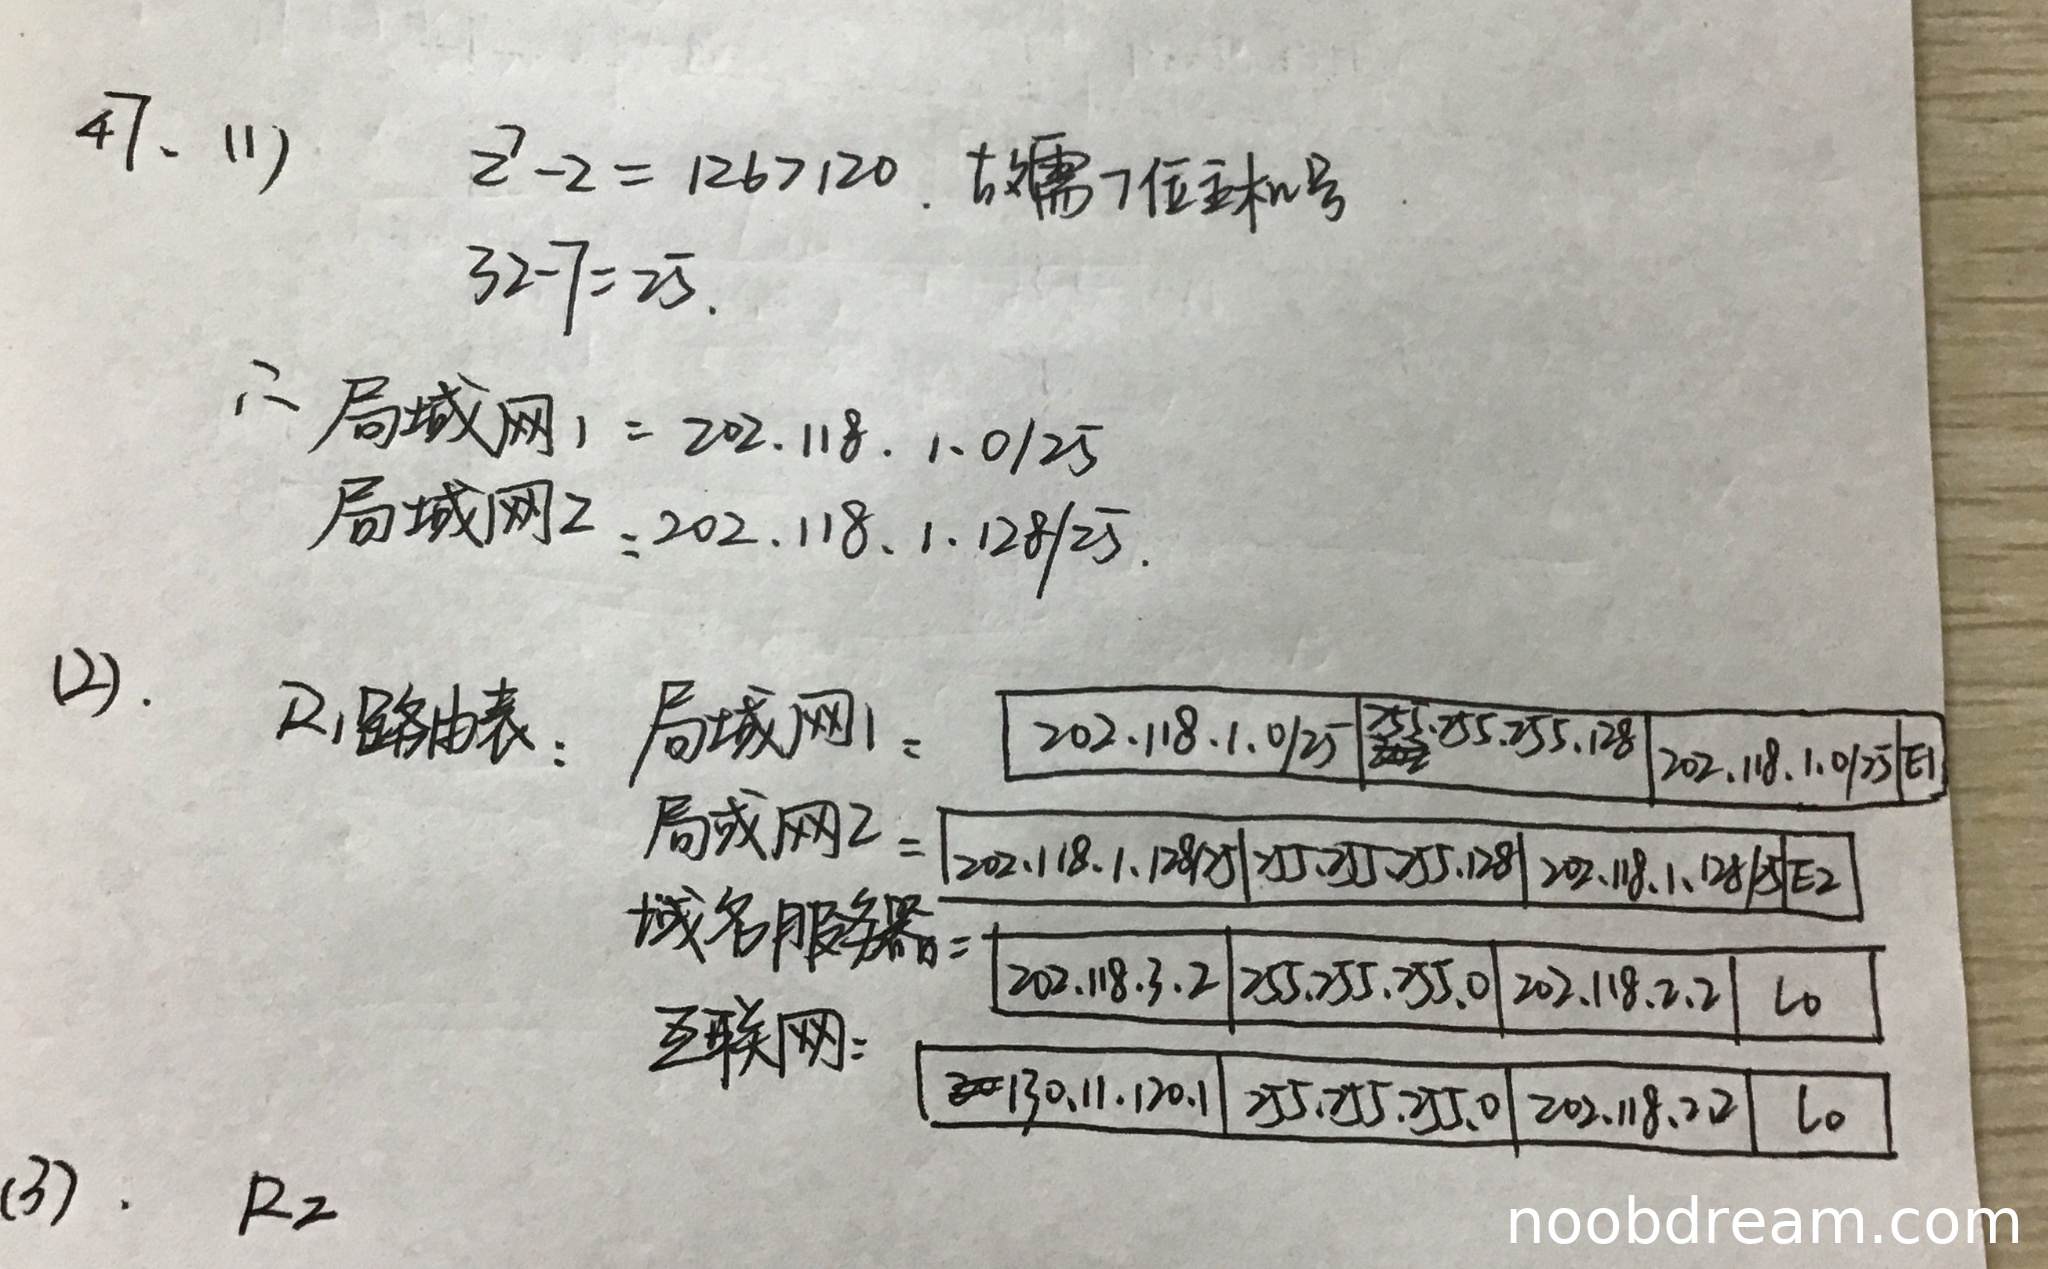 47、(1) 2⁷-2=126>120. 故需7位主机号.
32-7=25.
∴ 局域网1=202.118.1.0/25
局域网2=202.118.1.128/25.
(2). R1路由表: 局域网1= 202.118.1.0/25 255.255.255.128 202.118.1.0/25 E1
局或网2= 202.118.1.128/25 255.255.255.128 202.118.1.128/25 E2
域名服务器= 202.118.3.2 255.255.255.0 202.118.2.2 L0
互联网= 130.11.120.1 255.255.255.0 202.118.2.2 L0
(3). R2
noobdream.com